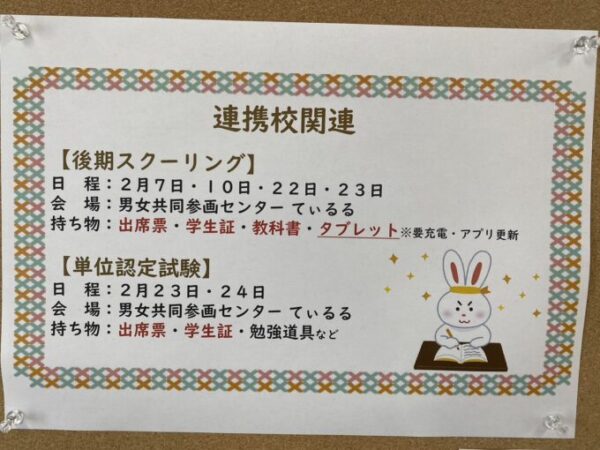 連携校関連
【後期スクーリング】
日　程：２月７日・１０日・２２日・２３日
会　場：男女共同参画センター てぃるる
持ち物：出席票・学生証・教科書・タブレット※要充電・アプリ更新
【単位認定試験】
日　程：２月２３日・２４日
会　場：男女共同参画センター てぃるる
持ち物：出席票・学生証・勉強道具など